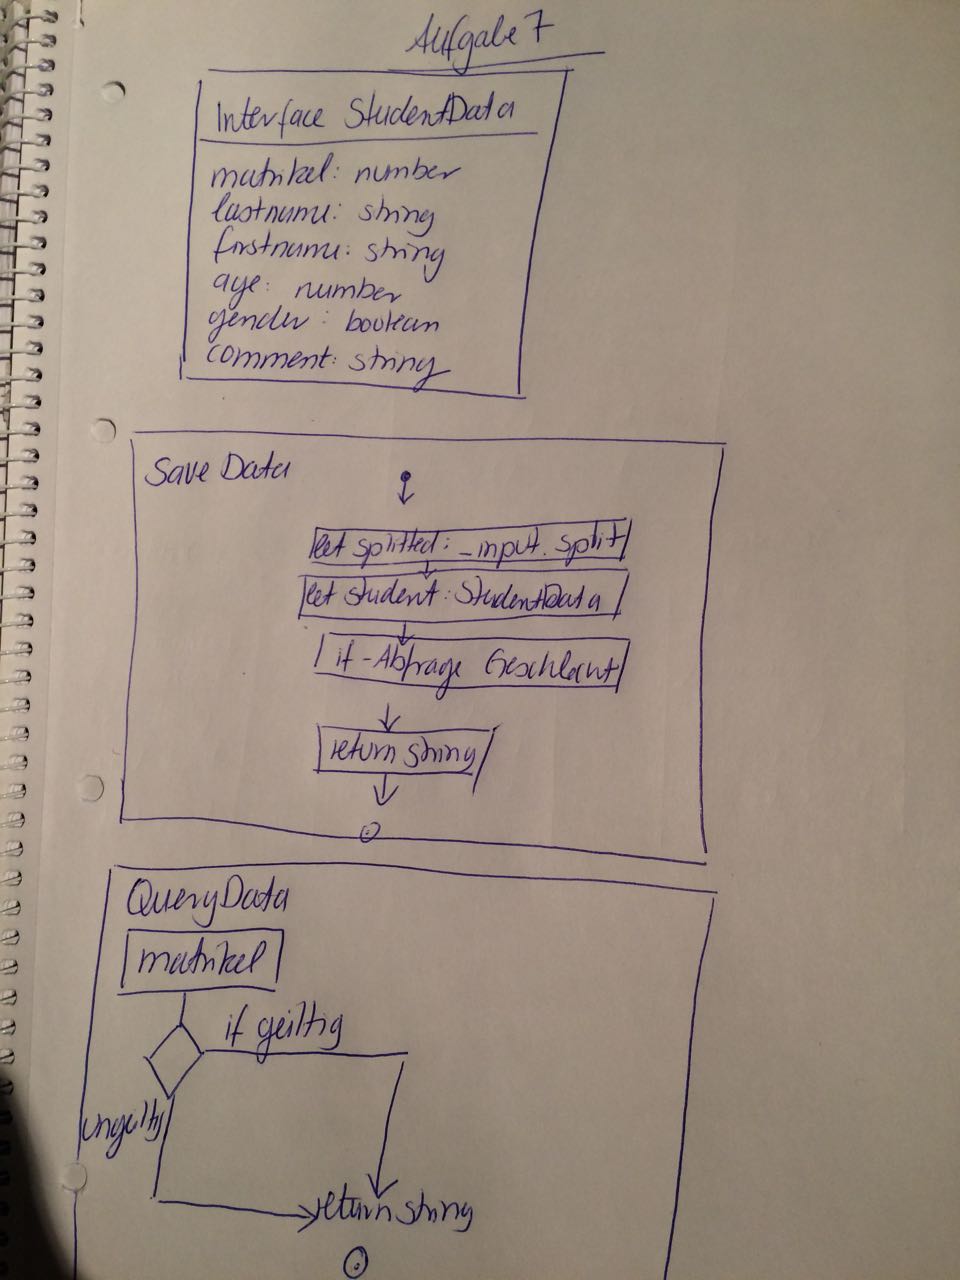 Aufgabe 7
Interface StudentData
matrikel: number
lastname: string
firstname: string
age: number
gender: boolean
comment: string
Save Data
let splitted: _input.split
let student: StudentData
if-Abfrage Geschlecht
return string
QueryData
matrikel
if gültig
ungültig
return string